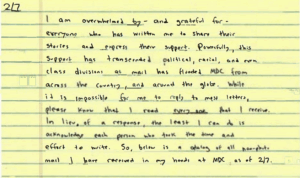 2/7
I am overwhelmed by - and grateful for -
everyone who has written me to share their
stories and express their support. Powerfully, this
support has transcended political, racial, and even
class divisions as mail has flooded MDC from
across the country, and around the globe. While
it is impossible for me to reply to most letters,
please know that I read every one that I receive.
In lieu of a response, the least I can do is
acknowledge each person who took the time and
effort to write. So, below is a catalog of all
mail I have received in my hands at MDC as of 2/7.